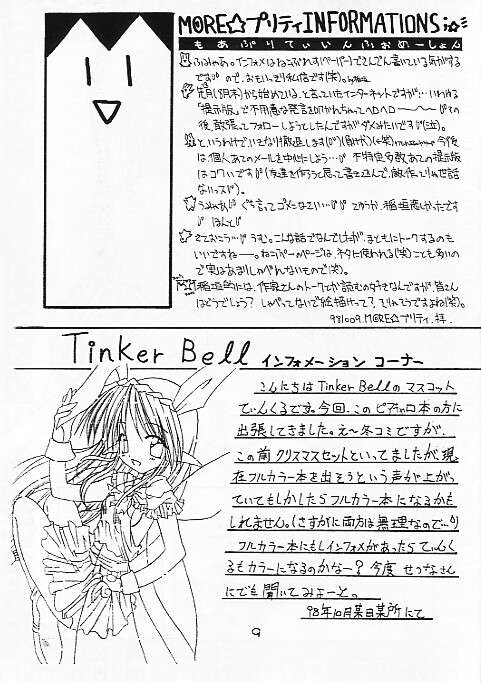 MORE☆プリティINFORMATIONS
もあぷりてぃいんふぉめーしょん
ふみゅあ。インフォメはねこぶれす(ペーパー)でさんざん書いている気がする
ですの で、おもいっきり私信です(笑)
先月(8月末)から始めている、と言っていたインターネットですが…いわゆる
「掲示板」で不用意な発言を叩かれちゃってヘロヘロ〜〜〜 その
後、頑張ってフォローしようとしたんですがダメみたいです(泣)。
というわけでいきなり撤退します
は個人あてのメールを中心にしよう… 不特定多数あての掲示板
はコワいです (友達を作ろうと思って書き込んで、敵作ってりゃ世話
ないっス)。
うみゅあ ぐち言ってゴメンなさい… てゆうか、稲垣悪かったです
ほんと
さておこう… うむ。こんな話でなんでしたが、まともにトークするのも
いいですねー。ねこぶーのページは、ネタに使われる(笑)ことも多いの
で実はあまりしゃべれないもので(笑)。
稲垣的には、作家さんのトークとか読むのダイスキなんですが、皆さん
はどうでしょう? しゃべってないで絵描けって? でれってそうですよね(笑)。
981009. MORE☆プリティ.拝.
Tinker Bell インフォメーション コーナー
こんにちは Tinker Bellの マスコット
てぃんくるです。今回、この ピアキャロ本の方に
出張してきました。え〜冬コミですが、
この前 クリスマスセットといってましたが、現
在フルカラー本を出そうという声が上がっ
ていてもしかしたらフルカラー本になるかも
しれません。(さすがに両方は無理なので…)
フルカラー本にもしインフォメがあったら てぃんく
るもカラーになるのかなー? 今度 せつなさん
にでも聞いてみよーと。
98年10月某日某所にて
9